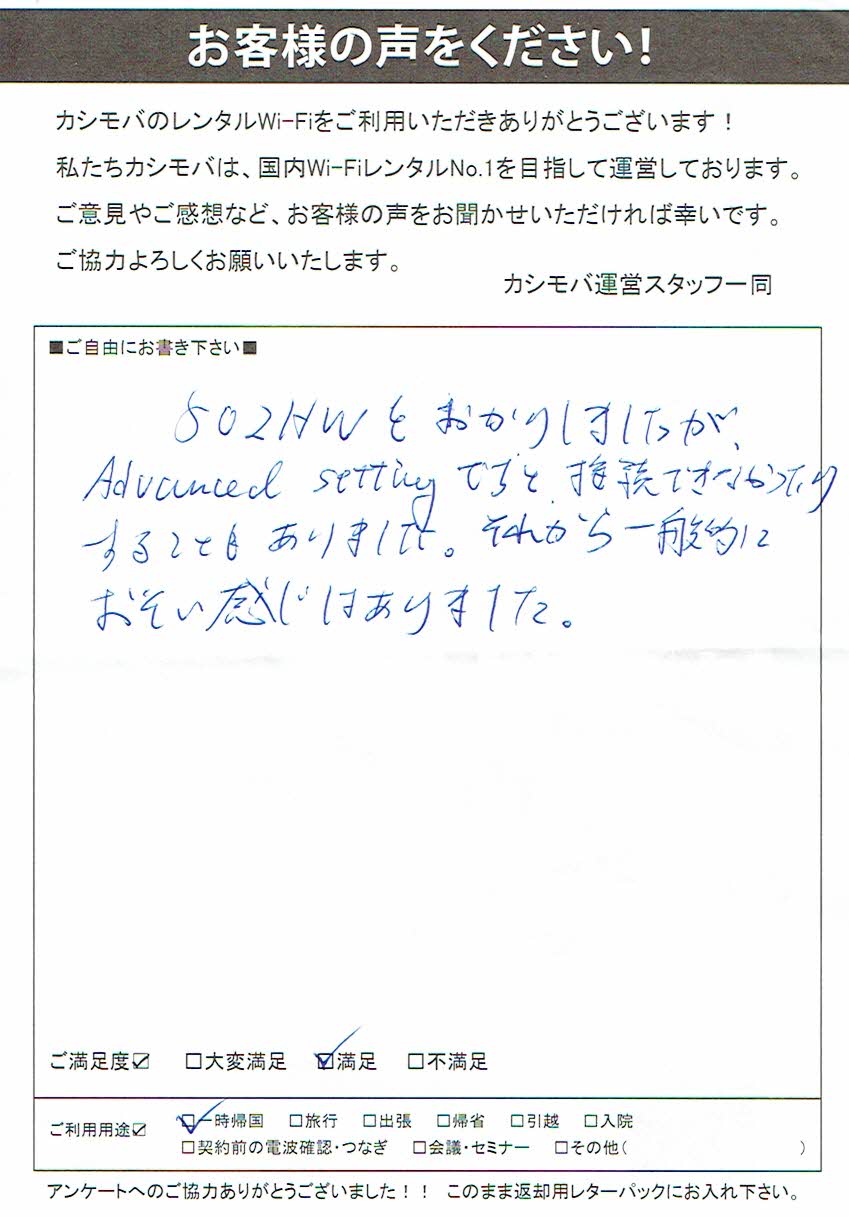 お客様の声をください!
カシモバのレンタルWi-Fiをご利用いただきありがとうございます！
私たちカシモバは、国内Wi-FiレンタルNo.1を目指して運営しております。
ご意見やご感想など、お客様の声をお聞かせいただければ幸いです。
ご協力よろしくお願いいたします。
カシモバ運営スタッフ一同
■ご自由にお書き下さい■
802HWをおかりしましたが、
Advanced setting でも 接続できなかったり
することもありました。それから一般的に
おそい感じはありました。
ご満足度☑ □大変満足 ☑満足 □不満足
ご利用用途☑ ☑一時帰国 □旅行 □出張 □帰省 □引越 □入院
□契約前の電波確認・つなぎ □会議・セミナー □その他( )
アンケートへのご協力ありがとうございました！！ このまま返却用レターパックにお入れ下さい。